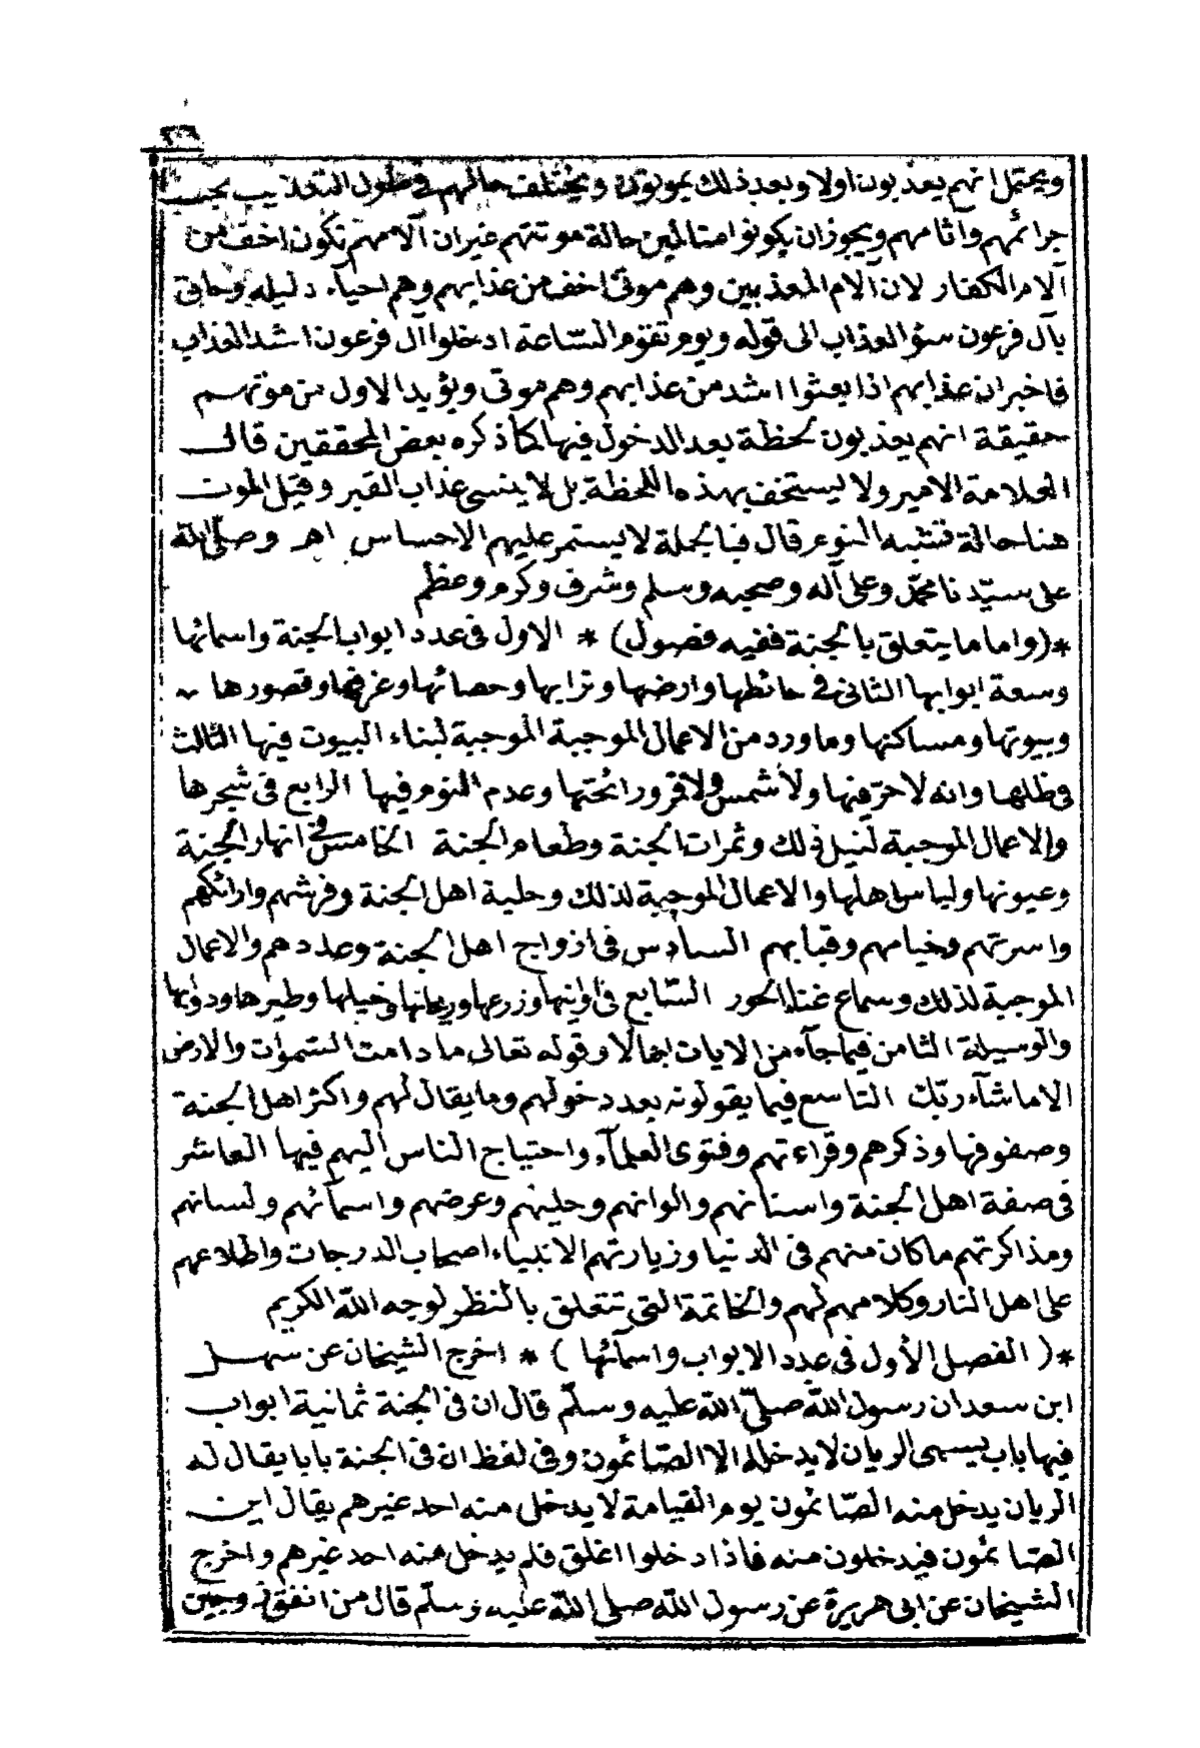 ويحتمل انهم يعذبون اولا وبعد ذلك يموتون ويختلف حالهم فى طول التعذيب بحسب
جرائمهم وآثامهم ويجوز ان يكونوا متألمين حالة موتتهم غيران آلامهم تكون اخف من
آلام الكفار لان آلام المعذبين وهم موتى اخف من عذابهم وهم احياء دليله وحاق
بآل فرعون سؤ العذاب الى قوله ويوم تقوم السّاعة ادخلوا آل فرعون اشد العذاب
فاخبر ان عذابهم اذا بعثوا اشد من عذابهم وهم موتى ويؤيد الاول من موتهم
حقيقة انهم يعذبون لحظة بعد الدخول فيها كما ذكره بعض المحققين قال
العلامة الامير ولا يستخف بهذه اللحظة بل لا ينسى عذاب القبر وقيل الموت
هنا حالة تشبه النوم قال فبالجملة لا يستمر عليهم الاحساس اهـ وصلّى الله
على سيّدنا محمّد وعلى آله وصحبه وسلم وشرف وكرم وعظم
*(واما ما يتعلق بالجنة ففيه فصول)* الاول فى عدد ابواب الجنة واسمائها
وسعة ابوابها الثانى فى حائطها وارضها وترابها وحصائها وغرفها وقصورها
وبيوتها ومساكنها وما ورد من الاعمال الموجبة الموجبة لبناء البيوت فيها الثالث
فى ظلها وانه لا حرّ فيها ولا شمس ولا قمر ورائحتها وعدم النوم فيها الرابع فى شجرها
والاعمال الموجبة لنيل ذلك وثمرات الجنة وطعام الجنة الخامس فى انهار الجنة
وعيونها ولباس اهلها والاعمال الموجبة لذلك وحلية اهل الجنة وفرشهم وارائكهم
واسرتهم وخيامهم وقبابهم السادس فى ازواج اهل الجنة وعددهم والاعمال
الموجبة لذلك وسماع غناء الحور السّابع فى اوانيها وزرعها وريحانها وخيلها وطيرها ودوابها
والوسيلة الثامن فيما جآء من الايات اجمالا وقوله تعالى ما دامت السّموات والارض
الا ما شآء ربّك التاسع فيما يقولونه بعد دخولهم وما يقال لهم واكثر اهل الجنة
وصفوفها وذكرهم وقراءتهم وفتوى العلمآء واحتياج الناس اليهم فيها العاشر
فى صفة اهل الجنة واسنانهم والوانهم وحليهم وعرضهم واسمآئهم ولسانهم
ومذاكرتهم ما كان منهم فى الدنيا وزيارتهم الانبياء اصحاب الدرجات واطلاعهم
على اهل النار وكلامهم لهم والخاتمة التى تتعلق بالنظر لوجه الله الكريم
*( الفصل الأول فى عدد الابواب واسمآئها )* اخرج الشيخان عن سهل
ابن سعد ان رسول الله صلىّ الله عليه وسلّم قال ان فى الجنة ثمانية ابواب
فيها باب يسمى الريان لا يدخله الا الصّائمون وفى لفظ ان فى الجنة بابا يقال له
الريان يدخل منه الصّائمون يوم القيامة لا يدخل منه احد غيرهم يقال اين
الصّائمون فيدخلون منه فاذا دخلوا اغلق فلم يدخل منه احد غيرهم واخرج
الشيخان عن ابى هريرة عن رسول الله صلى الله عليه وسلّم قال من انفق زوجين